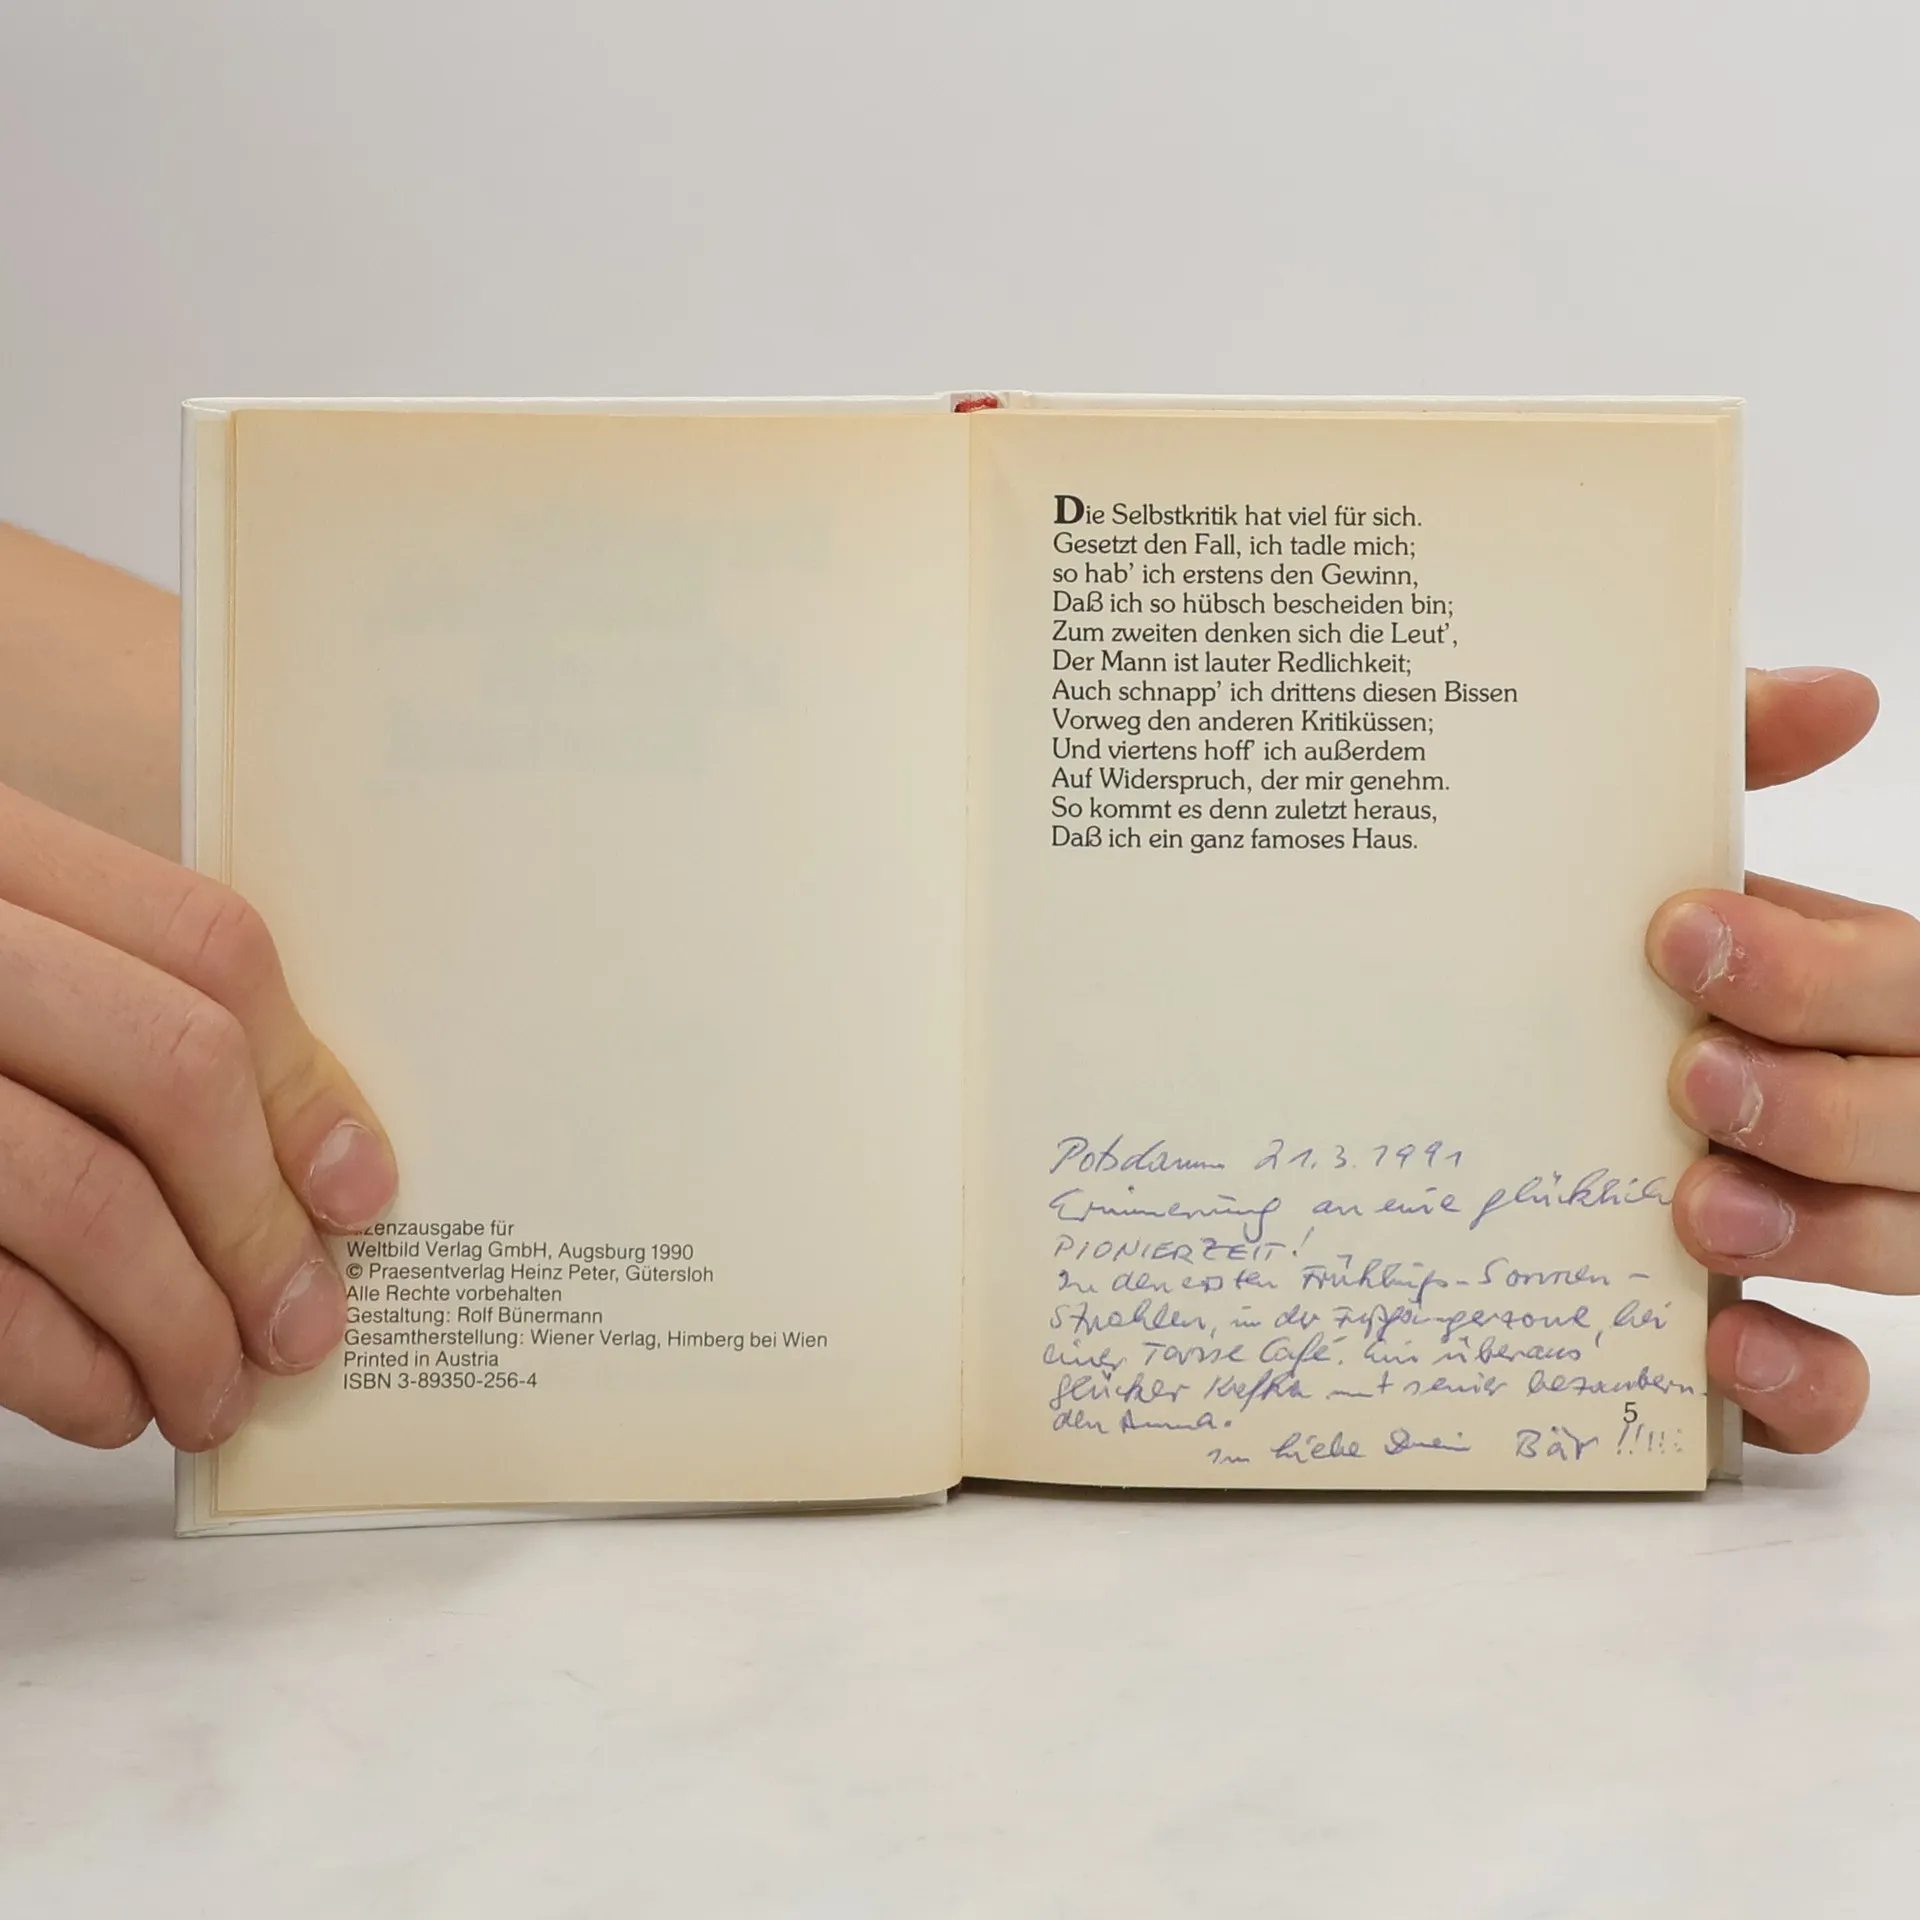 Lizenzausgabe für
Weltbild Verlag GmbH, Augsburg 1990
© Praesentverlag Heinz Peter, Gütersloh
Alle Rechte vorbehalten
Gestaltung: Rolf Bünermann
Gesamtherstellung: Wiener Verlag, Himberg bei Wien
Printed in Austria
ISBN 3-89350-256-4
Die Selbstkritik hat viel für sich.
Gesetzt den Fall, ich tadle mich;
so hab’ ich erstens den Gewinn,
Daß ich so hübsch bescheiden bin;
Zum zweiten denken sich die Leut’,
Der Mann ist lauter Redlichkeit;
Auch schnapp’ ich drittens diesen Bissen
Vorweg den anderen Kritiküssen;
Und viertens hoff’ ich außerdem
Auf Widerspruch, der mir genehm.
So kommt es denn zuletzt heraus,
Daß ich ein ganz famoses Haus.
Potsdam 21.3.1991
Erinnerung an eine glückliche
PIONIERZEIT!
In den ersten Frühlings-Sonnen-
Strahlen, in der Fußgängerzone, bei
einer Tasse Café. Ein überaus
Kafka mit seiner bezaubern-
den Anna.
In Liebe Dein Bär !!!!!
5